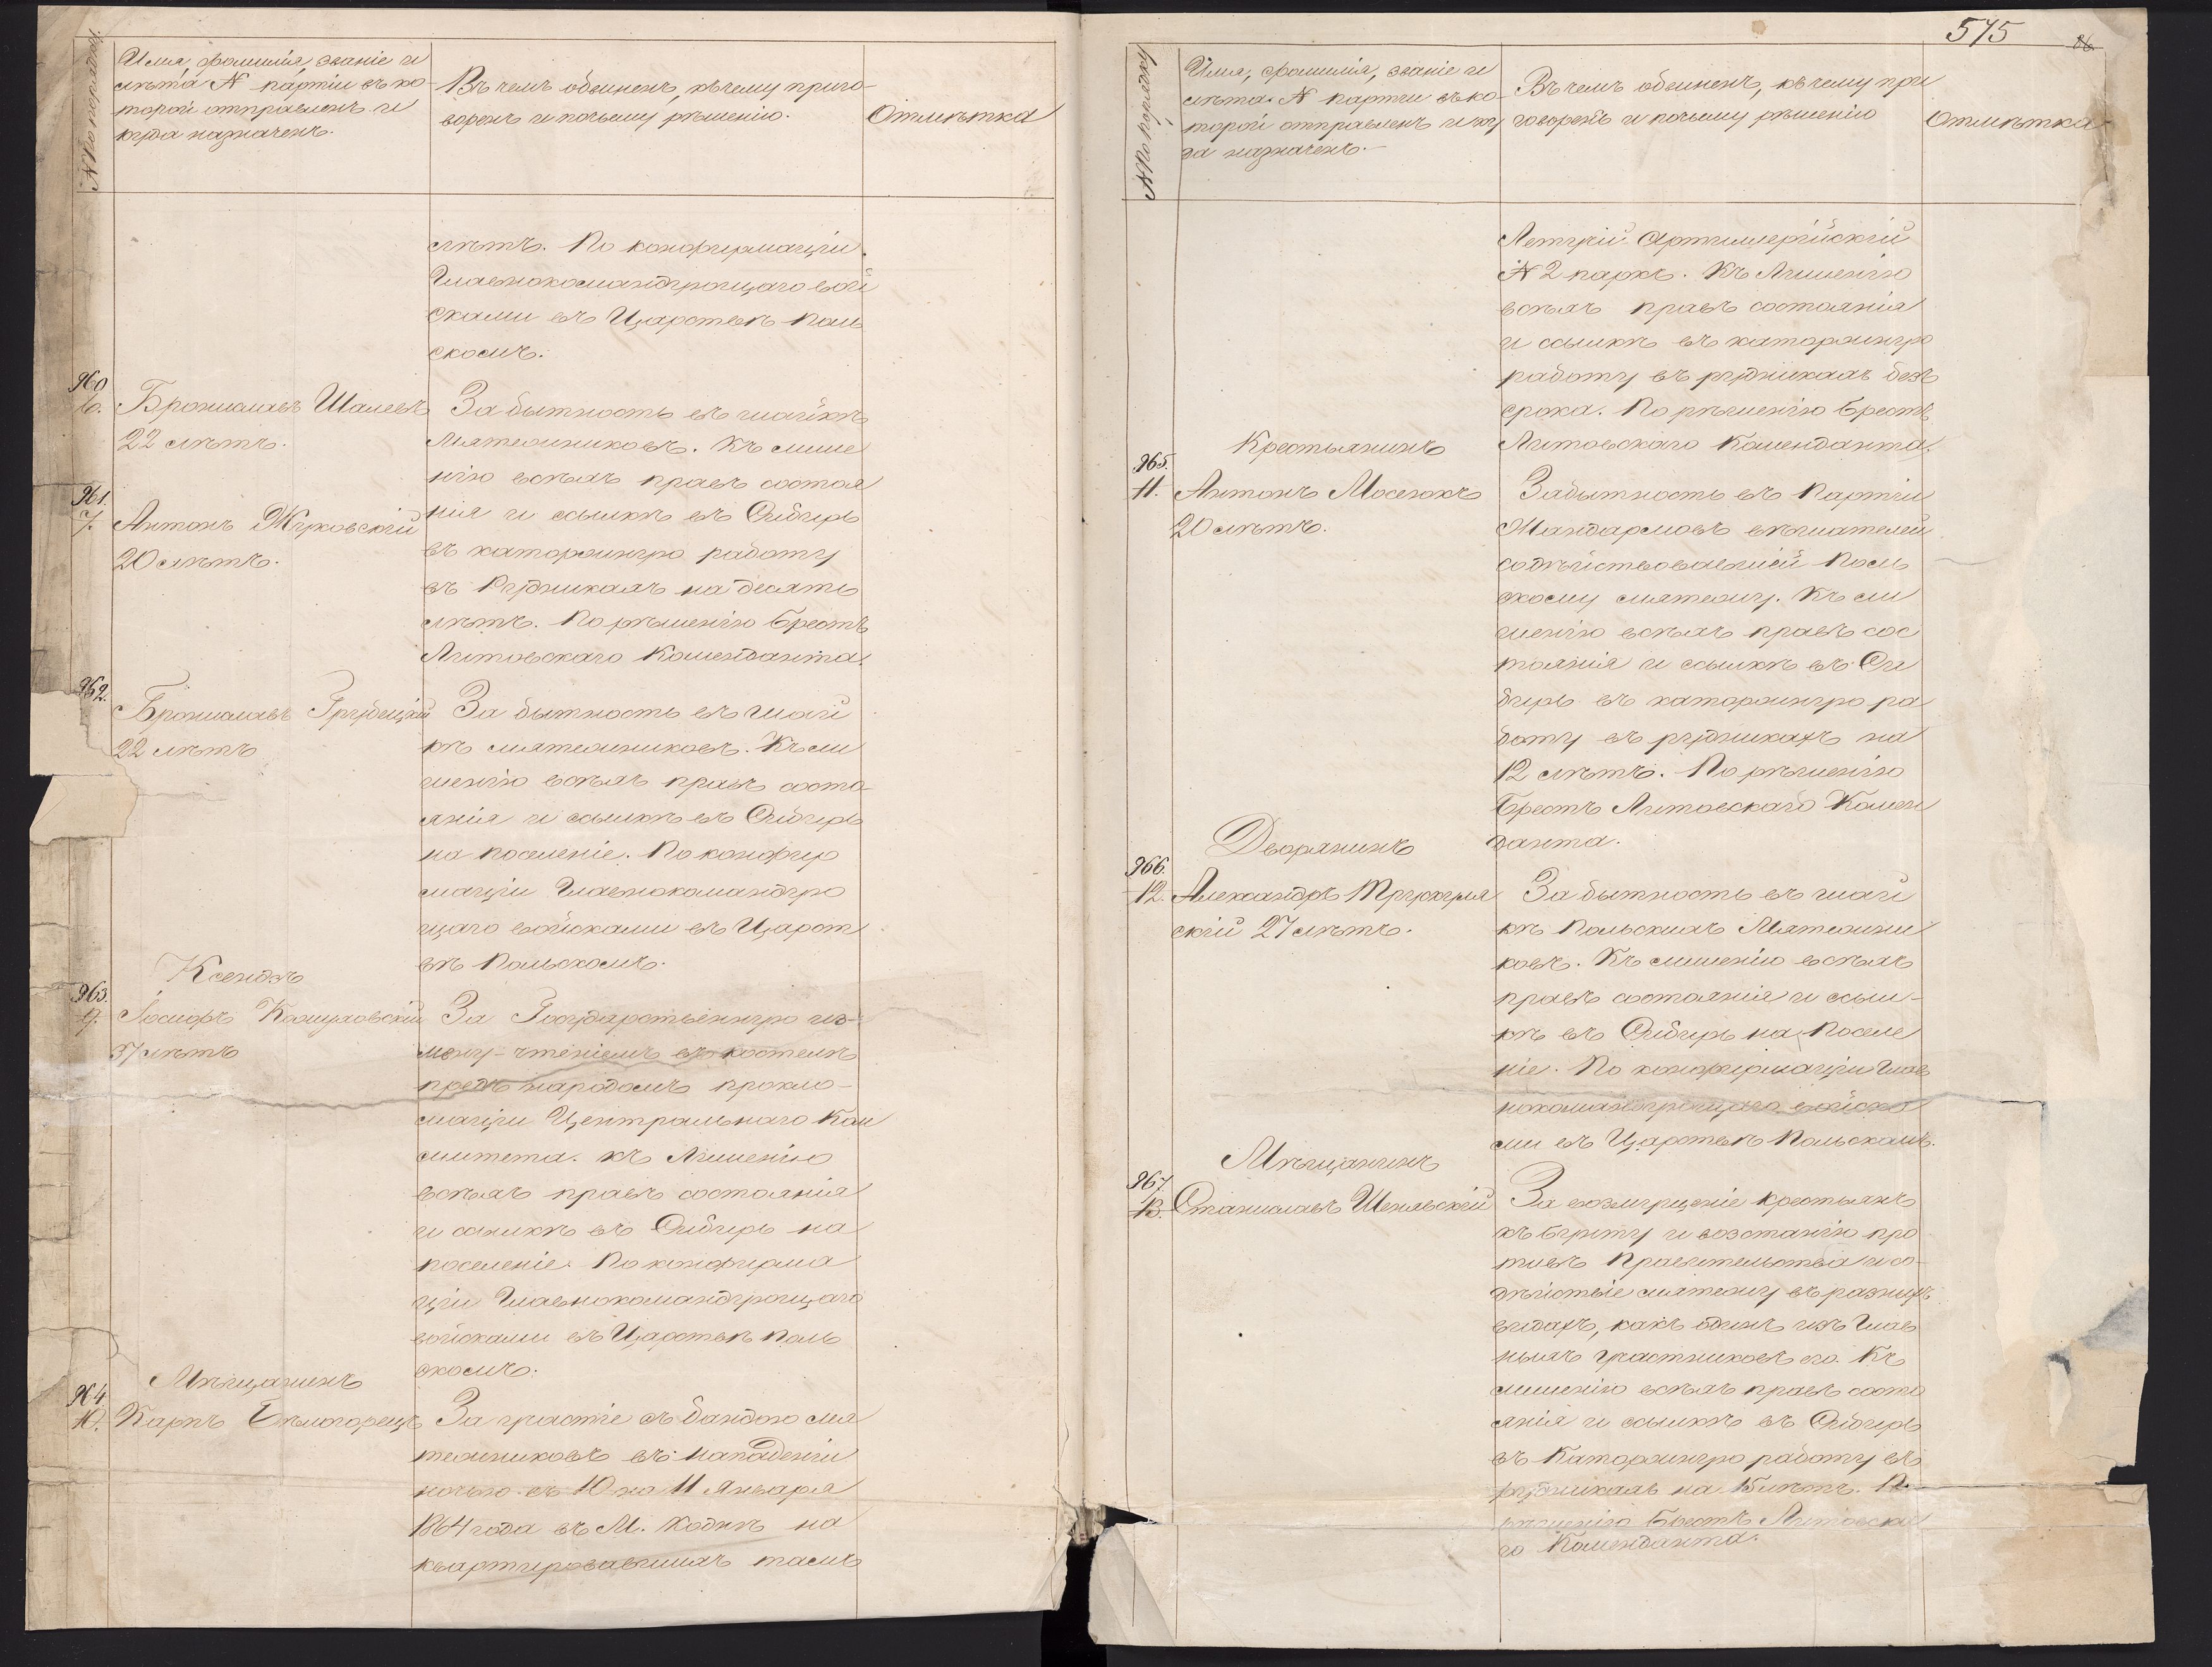 № по порядку
Имя, фамилія, званіе и
лѣта № партіи въ ко-
торой отправленъ и
куда назначенъ.
Въ чемъ обвиненъ, къ чему приго-
воренъ и почьему рѣшенію.
Отмѣтка
лѣтъ. По конфирмаціи
Главнокомандующаго вой
сками въ Царствѣ Поль
скомъ.
960
6. Брониславъ Шалевъ
22 лѣтъ.
За бытность въ шайкѣ
мятежниковъ. Къ лише
нію всѣхъ правъ состоя
961.
7. Антонъ Жуковскій
20 лѣтъ.
нія и ссылкѣ въ Сибирь
въ каторжную работу
въ Рудникахъ на десять
лѣтъ. По рѣшенію Брестъ
Литовскаго Коменданта.
962.
Брониславъ Грудецкій
22 лѣтъ
За бытность въ шай
кѣ мятежниковъ. Къ ли
шенію всѣхъ правъ состо
янія и ссылкѣ въ Сибирь
на поселеніе. По конфир
маціи Главнокомандую
щаго войсками въ Царст
вѣ Польскомъ.
Ксендзъ
963.
9. Іосифъ
37 лѣтъ
За Государственную из-
мену-чтеніемъ въ костелѣ
предъ народомъ прокло-
маціи Центральнаго Ком
митета. къ Лишенію
всѣхъ правъ состоянія
и ссылкѣ въ Сибирь на
поселеніе. По конфирма
ціи Главнокомандующаго
войсками въ Царствѣ Поль
скомъ.
Мѣщанинъ
964
10. Карпъ Бѣлогорецъ
За участіе съ бандою мя
тежниковъ въ нападеніи
ночью съ 10 на 11 Января
1864 года въ М. Коднѣ на
квартировавшихъ тамъ
575
86.
№ по порядку
Имя, фамилія, званіе и
лѣта. № партіи въ ко-
торой отправленъ и ку
да назначенъ.-
Въ чемъ обвиненъ, къ чему при
говоренъ и почьему рѣшенію
Отмѣтка
Летучій Артиллерійскій
№ 2 паркъ. Къ Лишенію
всѣхъ правъ состоянія
и ссылкѣ въ каторжную
работу въ рудникахъ безъ
срока. По рѣшенію Брестъ
Литовскаго Коменданта.
Крестьянинъ
965.
11. Антонъ Мосеюкъ
20 лѣтъ.
За бытность въ партіи
Жандармовъ вѣшателей
содѣйствовавшей Поль
скому мятежу. Къ ли
шенію всѣхъ правъ сос
тоянія и ссылкѣ въ Си
бирь въ каторжную ра
боту въ рудникахъ на
12 лѣтъ. По рѣшенію
Брестъ Литовскаго Комен
данта.
Дворянинъ
966.
12. Александръ
скій 27 лѣтъ.
За бытность въ шай
кѣ Польскихъ Мятежни
ковъ. Къ лишенію всѣхъ
правъ состоянія и ссыл-
кѣ въ Сибирь на Поселе
ніе. По конфирмаціи Глав
нокомандующаго войска
ми въ Царствѣ Польскомъ.
Мѣщанинъ
967.
13. Станиславъ Шенявскій
За возмущеніе крестьянъ
къ бунту и возстанію про
тивъ Правительства и со-
дѣйствіе мятежу въ разныхъ
видахъ, какъ одинъ изъ Глав
ныхъ участниковъ его. Къ
лишенію всѣхъ правъ состо
янія и ссылкѣ въ Сибирь
въ Каторжную работу въ
рудникахъ на 15 лѣтъ. По
рѣшенію Брестъ Литовска
го Коменданта.